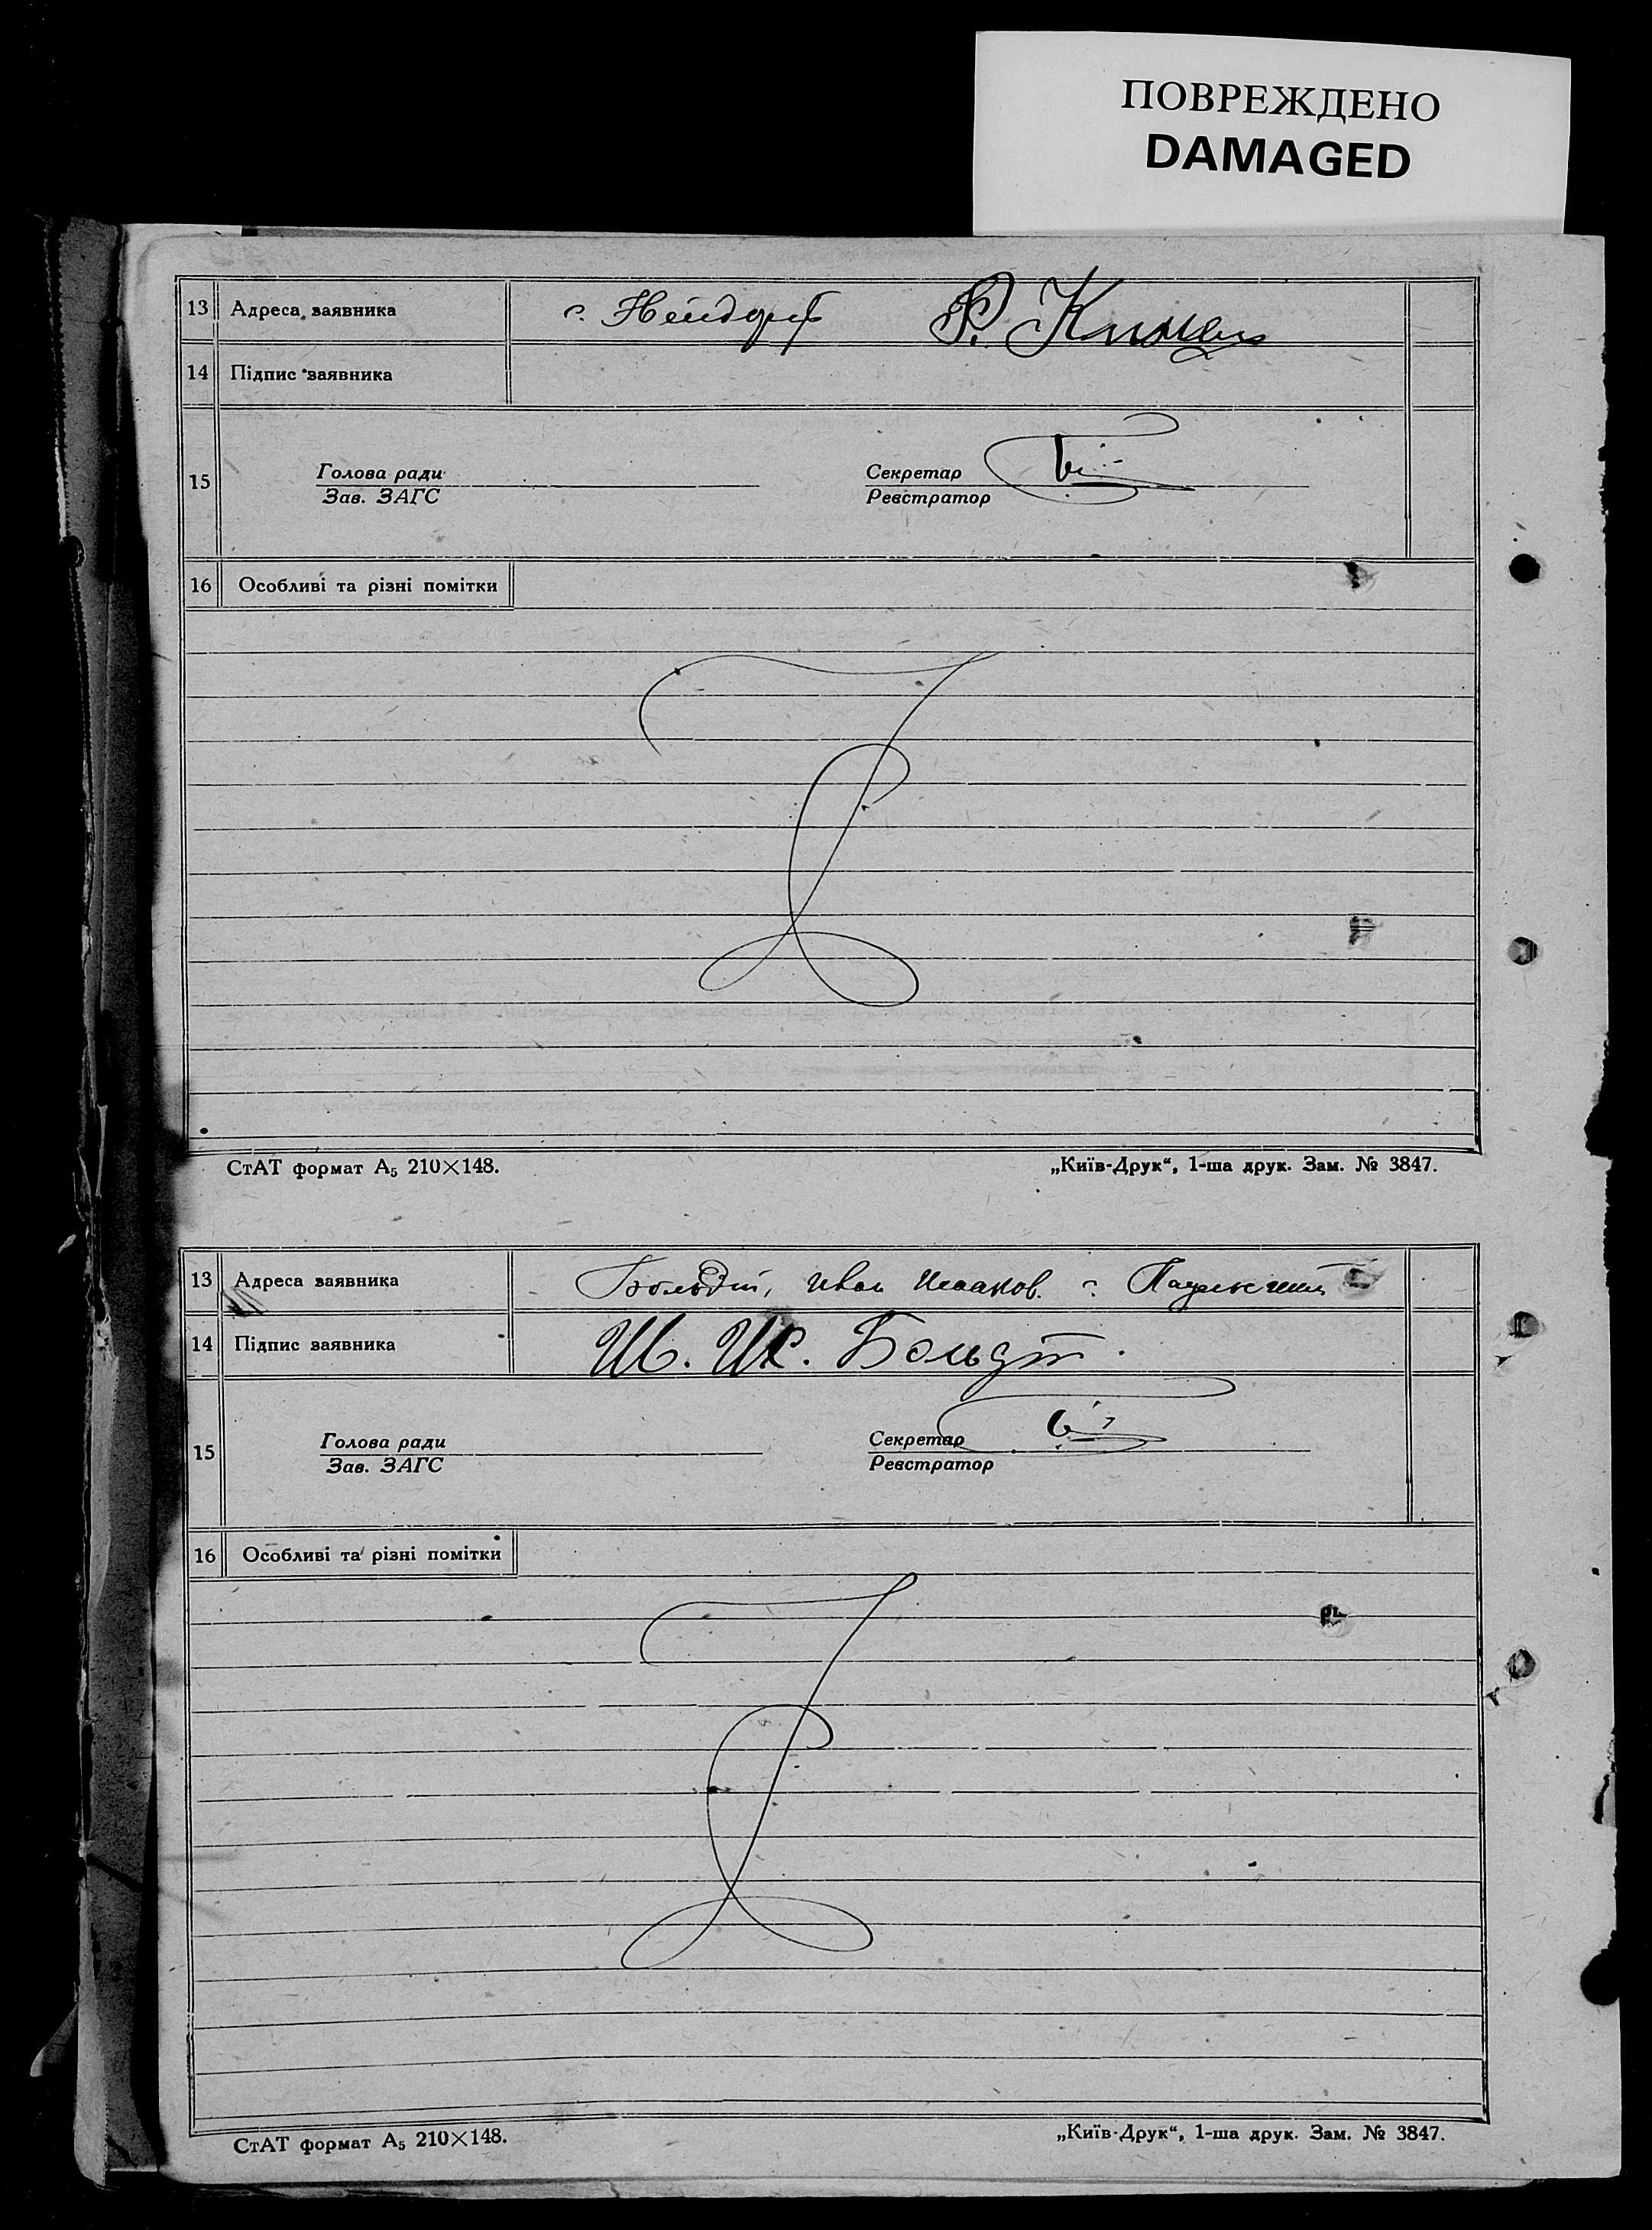 ПОВРЕЖДЕНО
DAMAGED
13 Адреса заявника с. Нейдорф
14 Підпис заявника
15 Голова ради Секретар
Зав. ЗАГС Реєстратор
16 Особливі та різні помітки
СтАТ формат А₅ 210×148. „Київ-Друк“, 1-ша друк. Зам. № 3847.
13 Адреса заявника Больдт, Иван Исааков. с.
14 Підпис заявника Ив. Ис. Больдт.
15 Голова ради Секретар
Зав. ЗАГС Реєстратор
16 Особливі та різні помітки
СтАТ формат А₅ 210×148. „Київ-Друк“, 1-ша друк. Зам. № 3847.